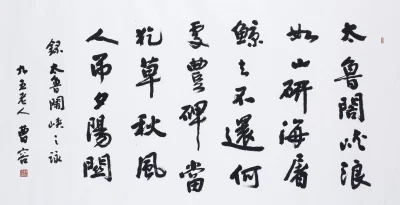 太魯閣峽浪
如山斫海屠
鯨去不還何
處豐碑當
草秋風
人弔夕陽間
錄太魯閣峽之詠
九五老人曹容